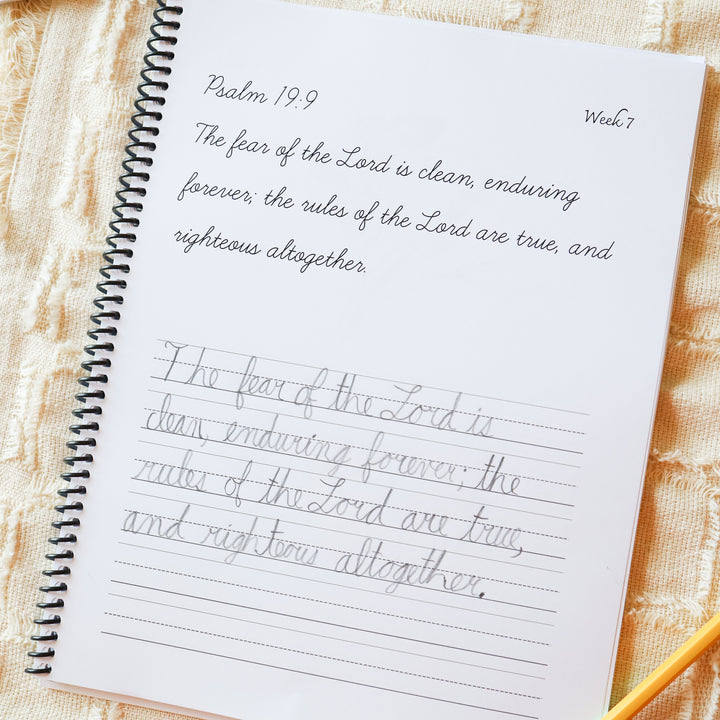 Psalm 19:9
Week 7
The fear of the Lord is clean, enduring
forever; the rules of the Lord are true, and
righteous altogether.
The fear of the Lord is
clean, enduring forever; the
rules of the Lord are true,
and righteous altogether.